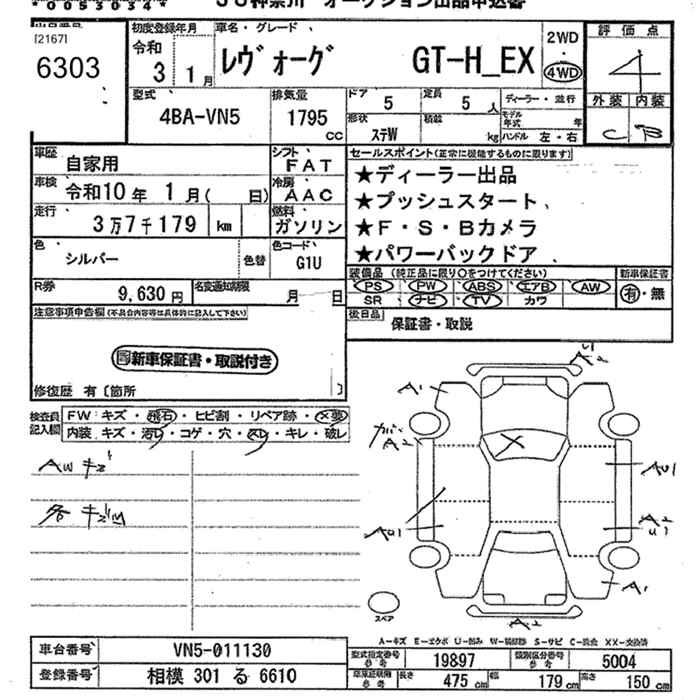 *0053034*
JU神奈川 オークション出品申込書
[2167]
6303
初度登録年月
令和
3 1月
車名・グレード
レヴォーグ GT-H_EX
2WD
・
4WD
評価点
4
外装 内装
C B
型式
4BA-VN5
排気量
1795
cc
ドア 5
定員 5 人
ディーラー・並行
形状
ステW
積載
kg
モデル年式 年
ハンドル 左・右
車歴 自家用
シフト FAT
車検 令和10年 1月( 日)
冷房 AAC
走行 3万7千179 km
燃料 ガソリン
色 シルバー 色替
色コード G1U
R券 9,630円
名変通知期限 月 日
セールスポイント(正常に機能するものに限ります)
★ディーラー出品
★プッシュスタート
★F・S・Bカメラ
★パワーバックドア
装備品 (純正品に限り○をつけてください)
PS PW ABS エアB AW
SR ナビ TV カワ
新車保証書
有・無
後日品 保証書・取説
注意事項申告欄(不具合内容等は具体的に記入して下さい)
新車保証書・取説付き
修復歴 有〔箇所 〕
検査員
記入欄
FW キズ・飛石・ヒビ割・リペア跡・×要
内装 キズ・汚レ・コゲ・穴・スレ・キレ・破レ
AW キズ
各 キズ
AU1
A2
A1
A2
AU1
AU1
A2
U1
A1
A2
スペア
A-キズ E-エクボ U-凹み W-補修跡 S-サビ C-腐食 XX-交換済
車台番号 VN5-011130
登録番号 相模 301 る 6610
型式指定番号
参考
19897
類別区分番号
参考
5004
車庫証明用
参考
長さ 475 cm
幅 179 cm
高さ 150 cm